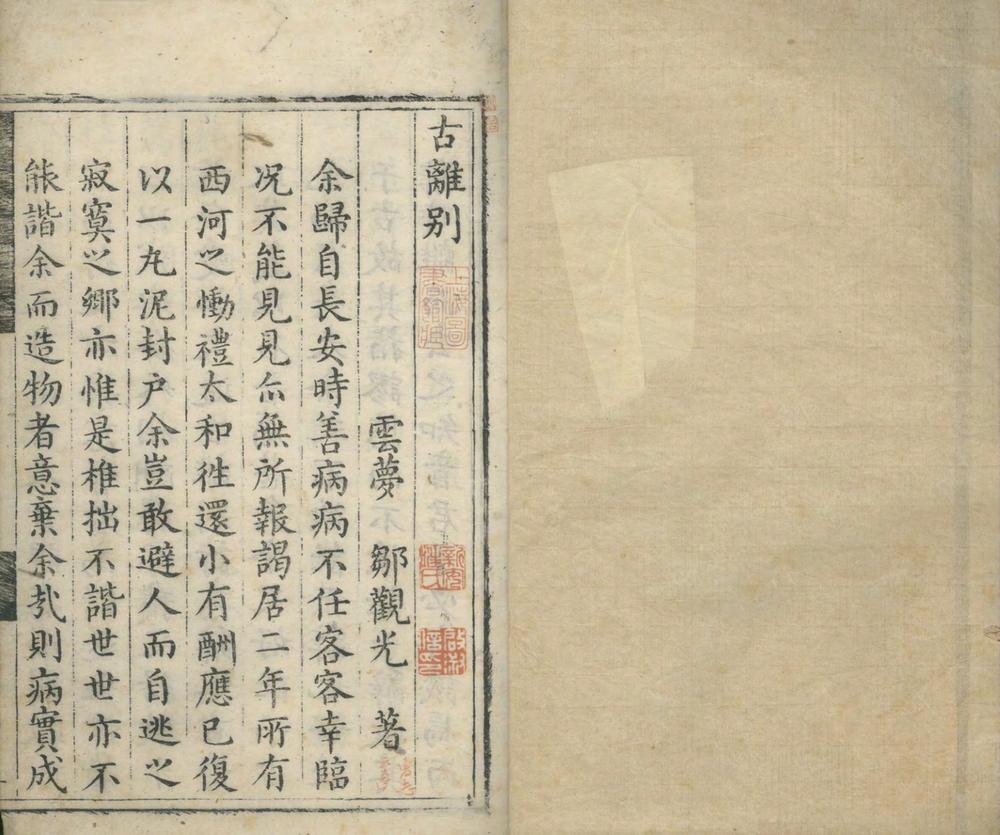 古離別
雲夢 鄒觀光 著
余歸自長安時善病病不任客客幸臨
况不能見見亦無所報謁居二年所有
西河之慟禮太和徃還小有酬應已復
以一丸泥封户余豈敢避人而自逃之
寂寞之鄉亦惟是椎拙不諧世世亦不
能諧余而造物者意棄余㢤則病實成
上海圖書館藏